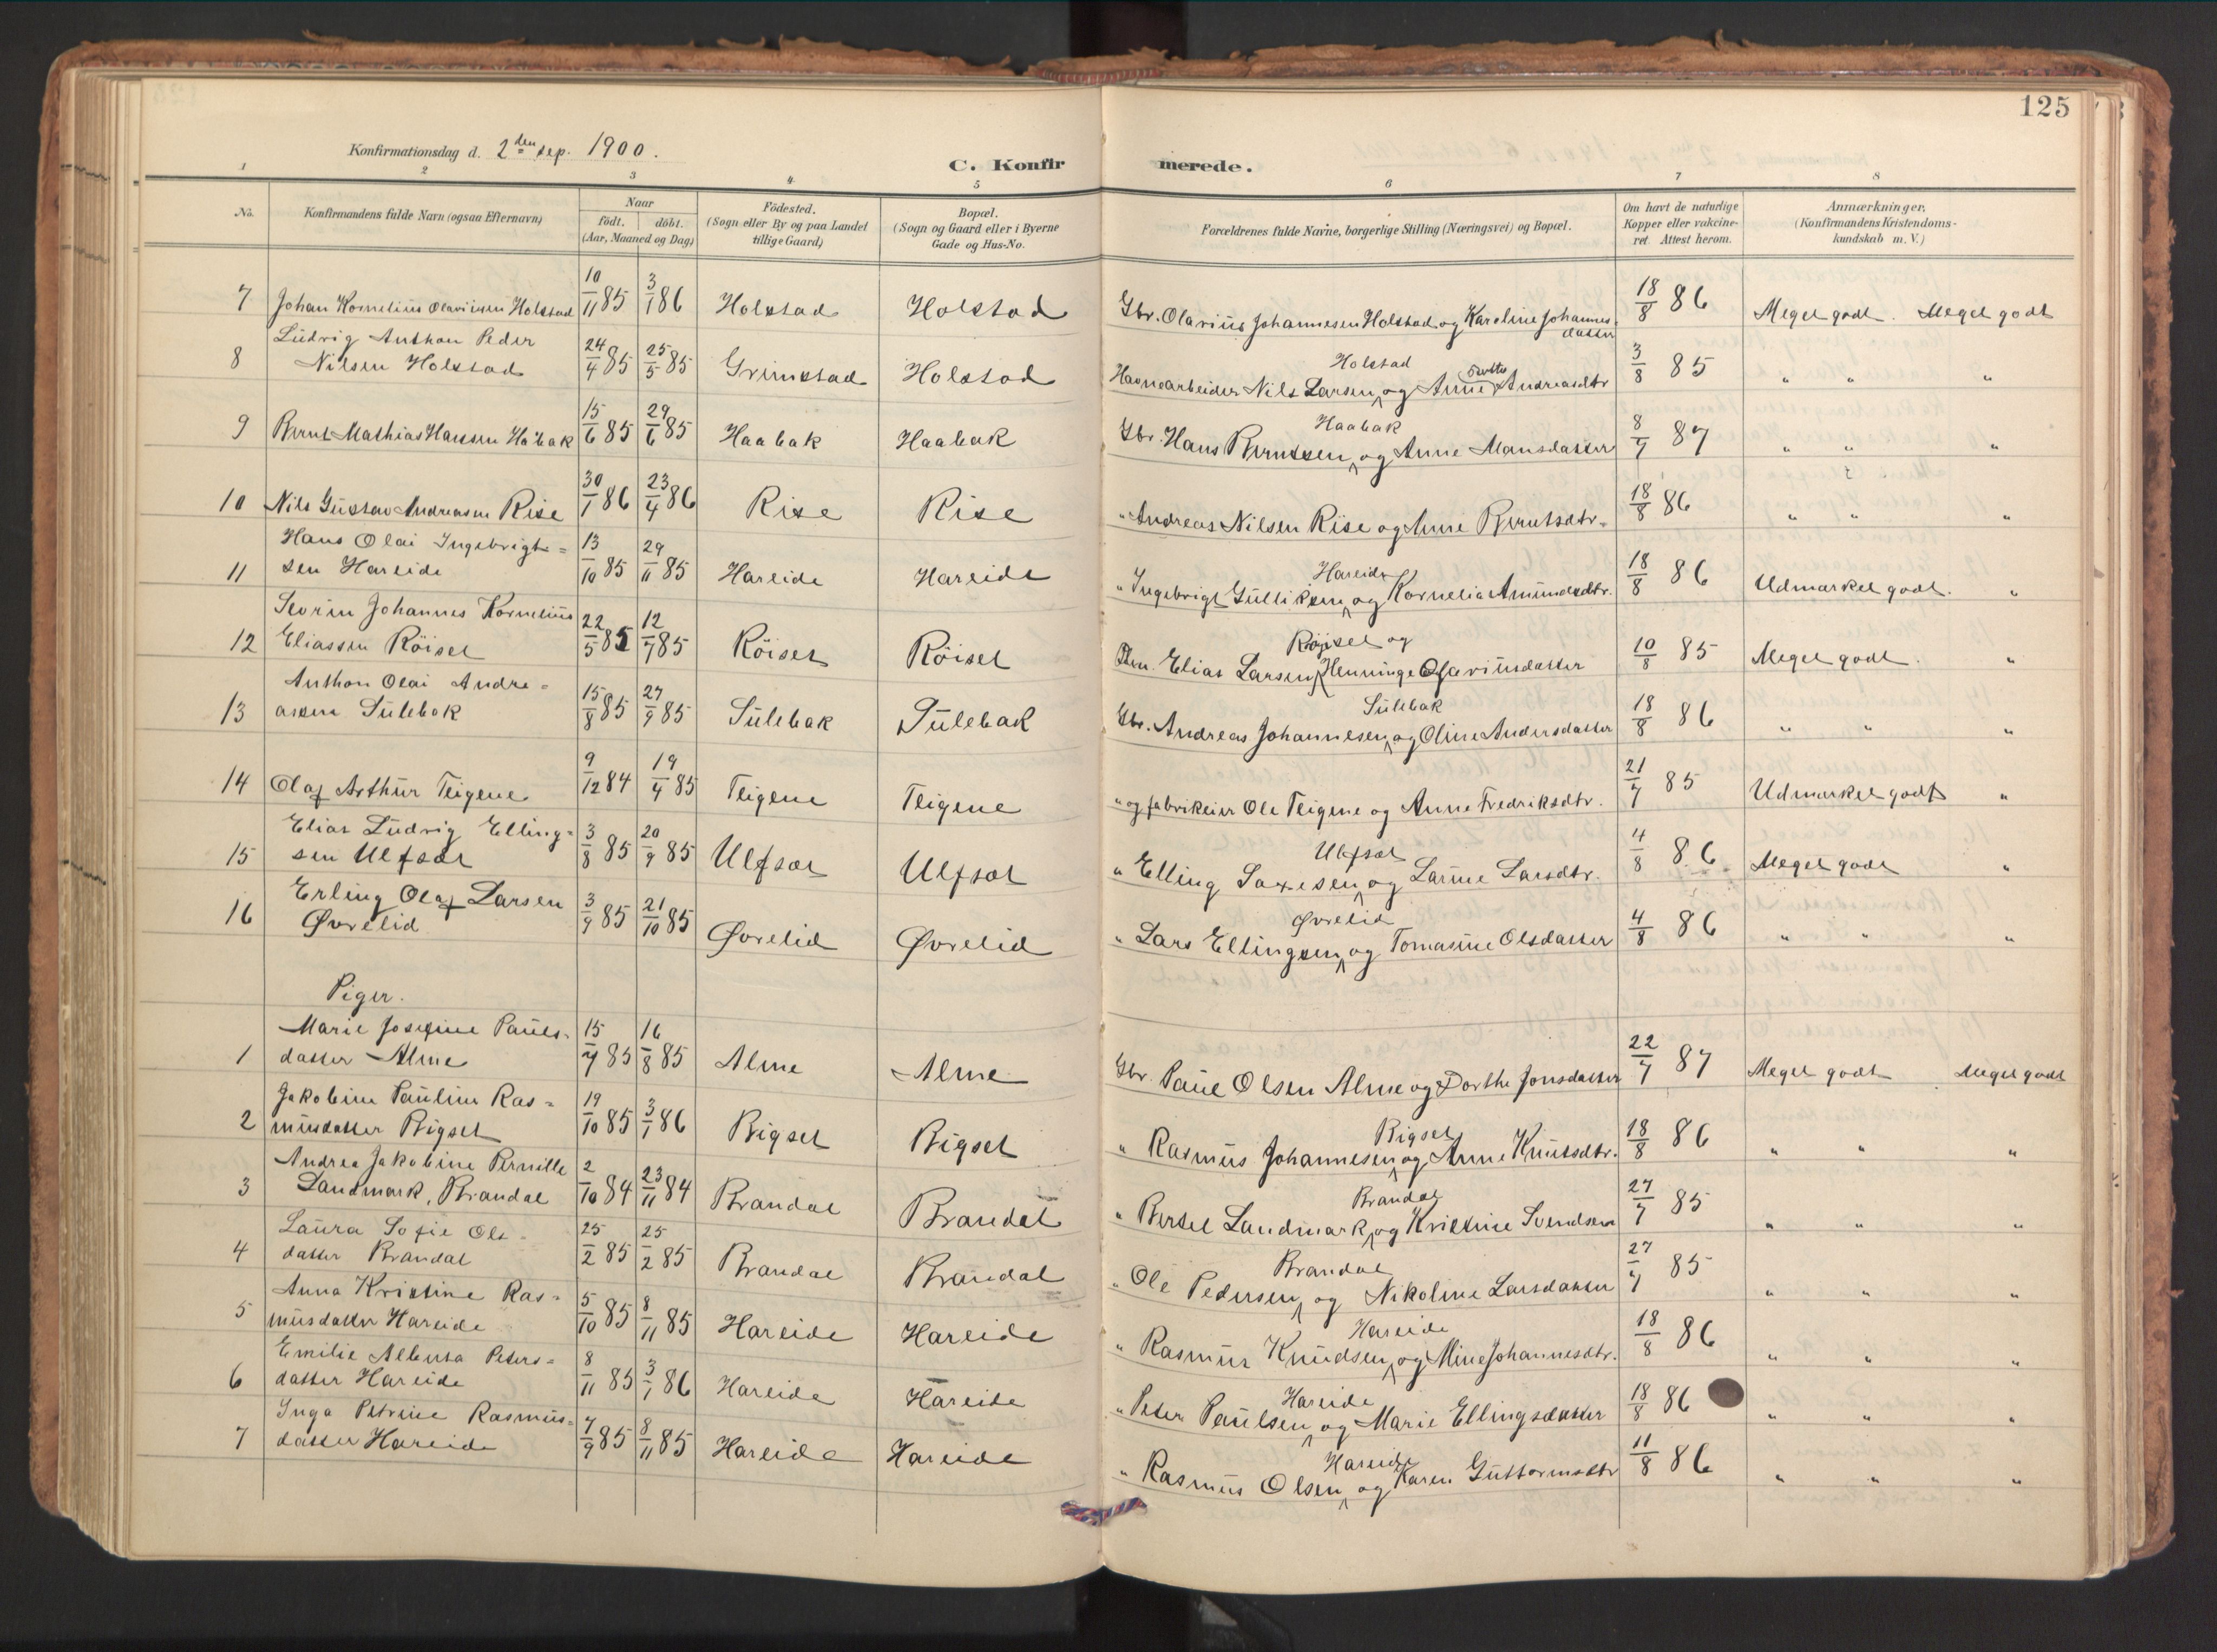 125
Konfirmationsdag d. 2den sep. 1900.
C. Konfirmerede.
1 2 3 4 5 6 7 8
No. Konfirmandens fulde Navn (ogsaa Efternavn) Naar født. døbt. (Aar, Maaned og Dag) Fødested. (Sogn eller By og paa Landet tillige Gaard) Bopæl. (Sogn og Gaard eller i Byerne Gade og Hus-No. Forældrenes fulde Navne, borgerlige Stilling (Næringsvei) og Bopæl. Om havt de naturlige Kopper eller vakcineret. Attest herom. Anmærkninger, (Konfirmandens Kristendomskundskab m. V.)
7 Johan Kornelius Olaviusen Holstad 10/11 85 3/1 86 Holstad Holstad Gbr. Olavius Johannesen Holstad og Karoline Johannesdatter 18/8 86 Meget godt. Meget godt
8 Ludvig Anthon Peder Nilsen Holstad 24/4 85 25/5 85 Grimstad Holstad Havnearbeider Nils Larsen Holstad og Anne Andreasdtr 3/8 85 " " "
9 Bernt Mathias Hansen Habak 15/6 85 29/6 85 Haabak Haabak Gbr. Hans Berntsen Haabak og Anne Mansdatter 8/7 87 " " "
10 Nils Gustav Andreasen Rise 30/1 86 23/4 86 Rise Rise " Andreas Nilsen Rise og Anne Berntsdtr. 18/8 86 " " "
11 Hans Olai Ingebrigtsen Hareide 13/10 85 29/11 85 Hareide Hareide " Ingebrigt Gulliksen Hareide og Kornelia Amundsdtr. 18/8 86 Udmærket godt. "
12 Severin Johannes Kornelius Eliassen Röiset 22/5 85 12/7 85 Röiset Röiset Elias Larsen Röiset og Henninge Olaviusdatter 10/8 85 Meget godt. "
13 Anthon Olai Andreassen Sulebak 15/8 85 27/9 85 Sulebak Sulebak Gbr. Andreas Johannesen Sulebak og Oline Andersdatter 18/8 86 " " "
14 Olaf Arthur Teigene 9/12 84 19/4 85 Teigene Teigene " og fabrikeier Ole Teigene og Anne Fredriksdtr. 21/7 85 Udmærket godt "
15 Elias Ludvig Ellingsen Ulfsæt 3/8 85 20/9 85 Ulfsæt Ulfsæt " Elling Saxesen Ulfsæt og Larine Larsdtr. 4/8 86 Meget godt "
16 Erling Olaf Larsen Øvrelid 3/9 85 21/10 85 Øvrelid Øvrelid " Lars Ellingsen Øvrelid og Tomasine Olsdatter 4/8 86 " " "
Piger.
1 Marie Josefine Paulsdatter Alme 15/7 85 16/8 85 Alme Alme Gbr. Paul Olsen Alme og Dorthe Jonsdatter 22/7 87 Meget godt. Meget godt
2 Jakobine Pauline Rasmusdatter Bigset 19/10 85 3/1 86 Bigset Bigset " Rasmus Johannesen Bigset og Anne Knutsdtr. 18/8 86 " " "
3 Andrea Jakobine Pernille Landmark, Brandal 2/10 84 23/11 84 Brandal Brandal " Bertel Landmark Brandal og Kristine Svendsen 27/7 85 " " "
4 Laura Sofie Olsdatter Brandal 25/2 85 25/2 85 Brandal Brandal " Ole Pedersen Brandal og Nikoline Larsdatter 27/7 85 " " "
5 Anna Kristine Rasmusdatter Hareide 5/10 85 8/11 85 Hareide Hareide " Rasmus Knudsen Hareide og Mine Johannesdtr. 18/8 86 " " "
6 Emilie Alberta Petersdatter Hareide 8/11 85 3/1 86 Hareide Hareide " Peter Paulsen Hareide og Marie Ellingsdatter 18/8 86 " " "
7 Inga Petrine Rasmusdatter Hareide 7/9 85 8/11 85 Hareide Hareide " Rasmus Olsen Hareide og Karen Guttormsdtr 11/8 86 " " "